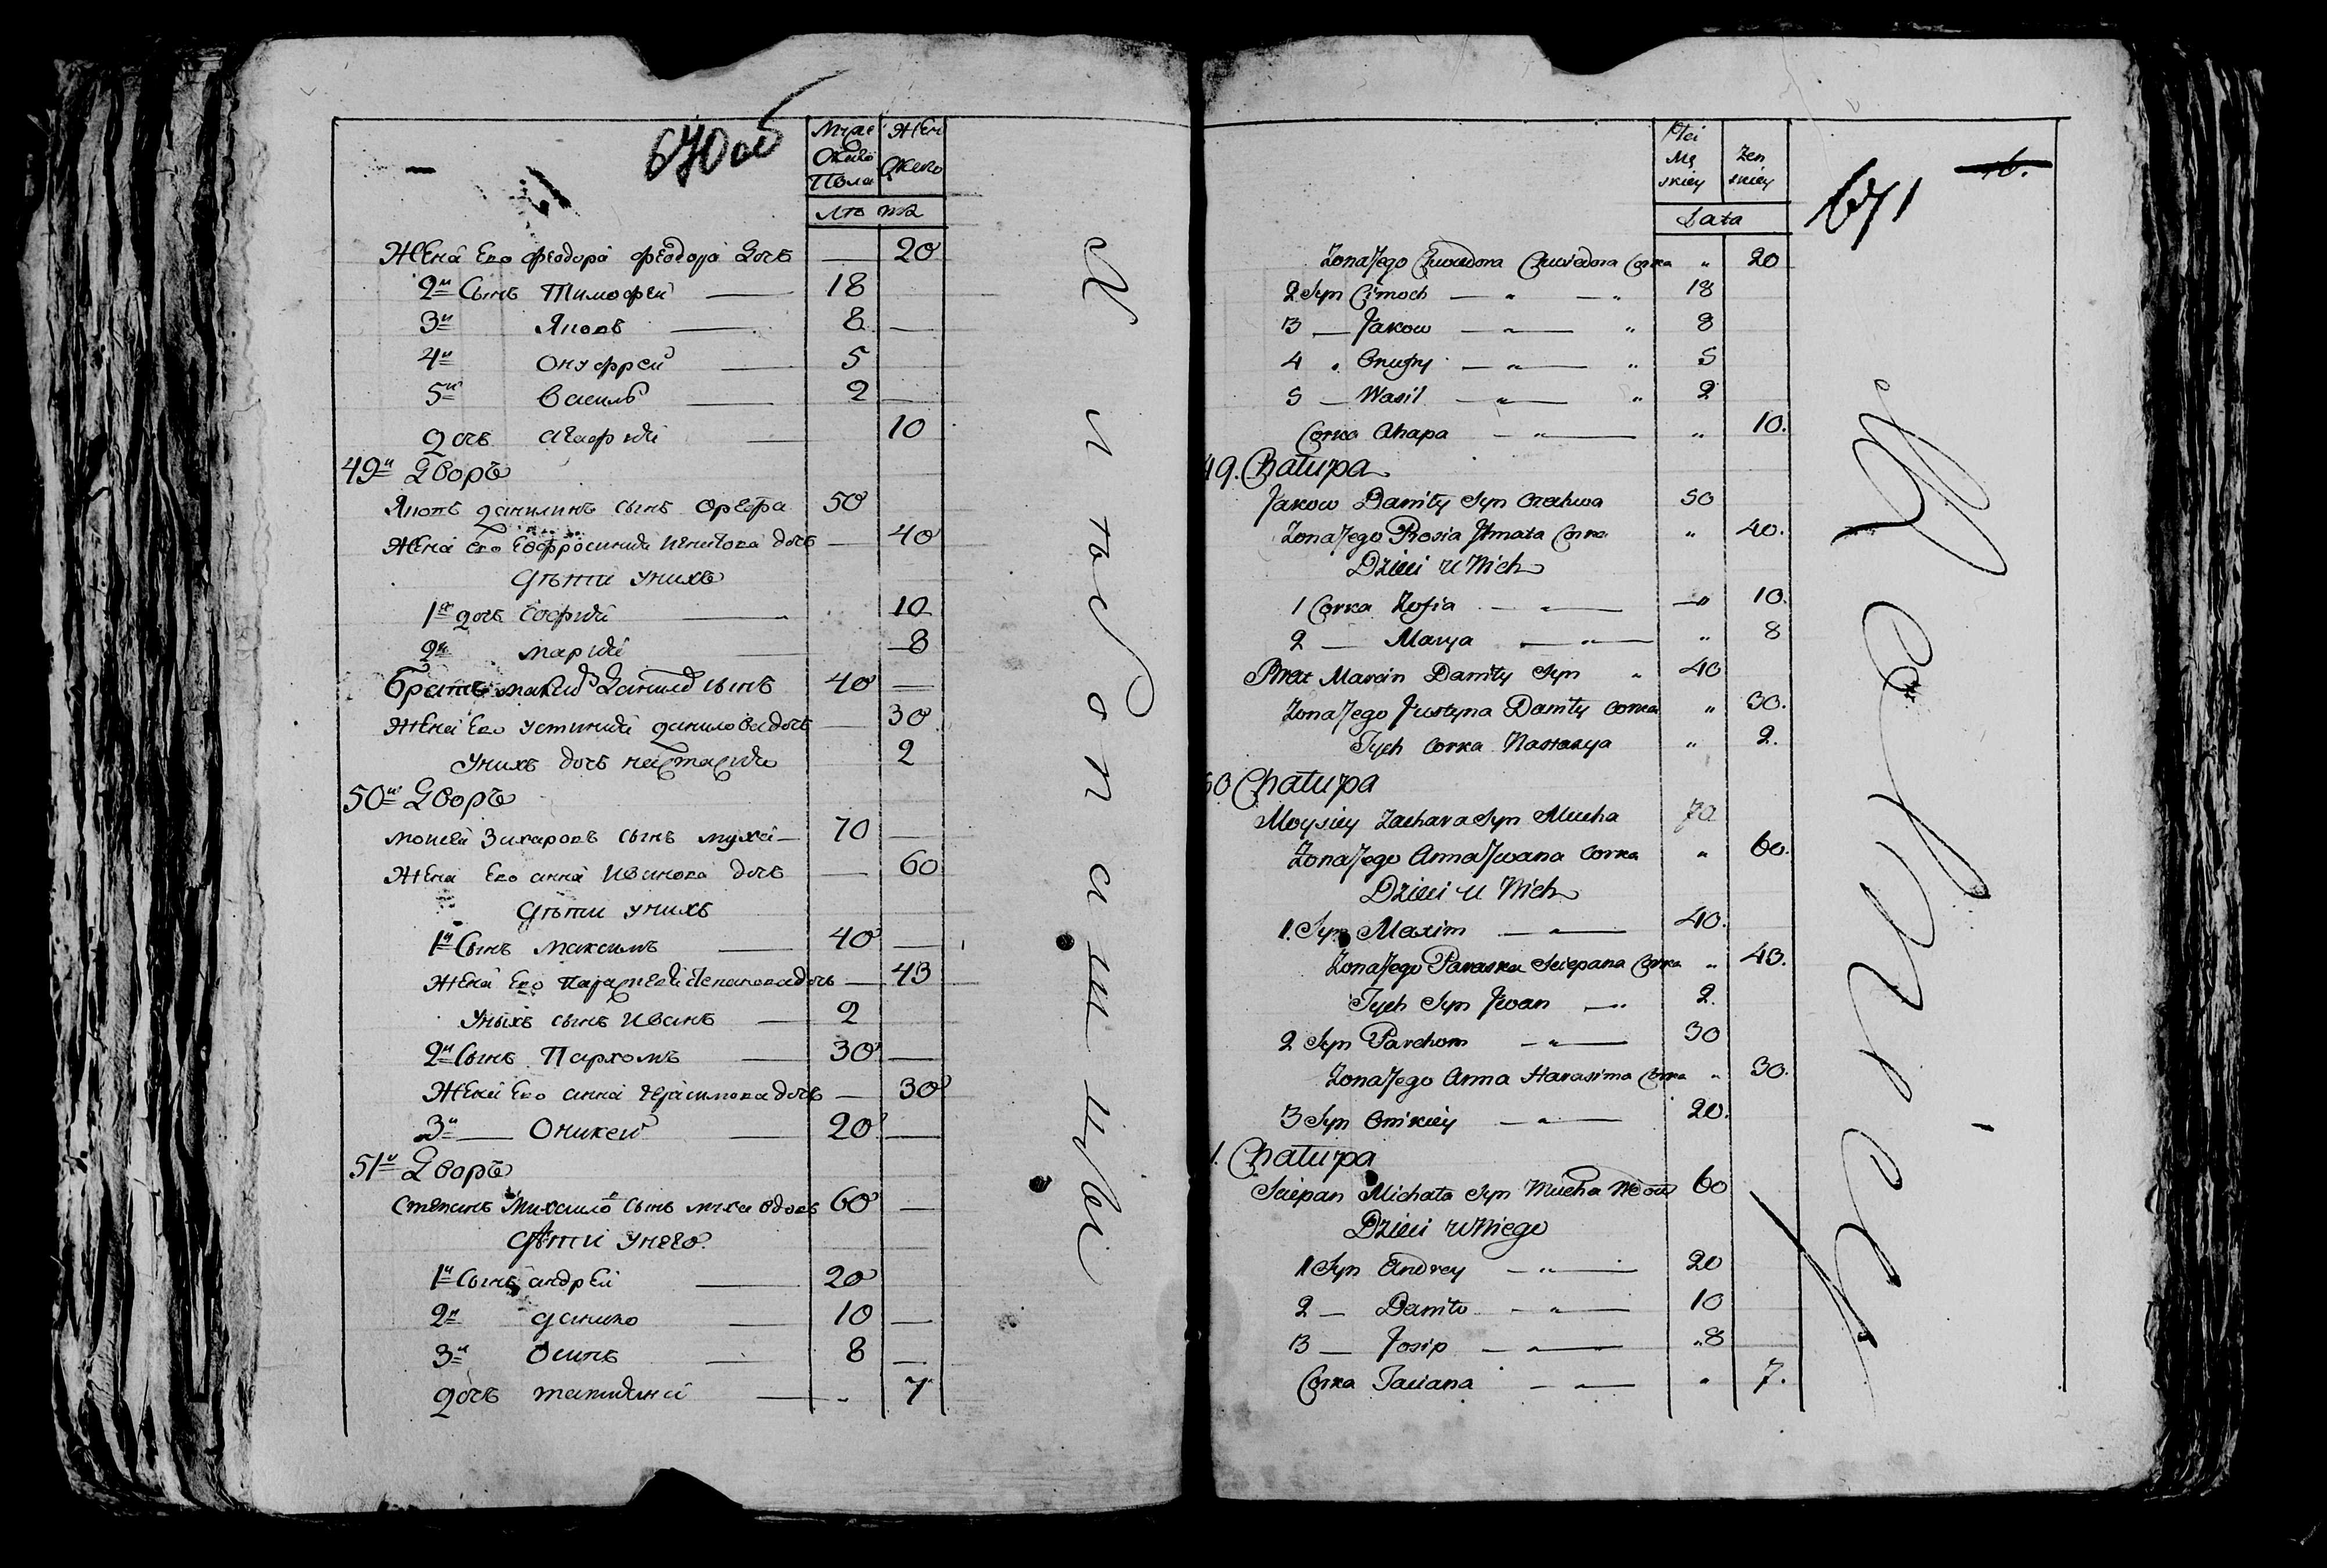 670 об
Мужеского Пола
Женского
Лѣта
Жена Его Феодора Феодора Дочь — 20
2й Сынъ Тимофей — 18
3й Яковъ — 8
4й Онуфрей — 5
5й Василь — 2
Дочь Агафия — 10
49й Дворъ
Яковъ Данилинъ сынъ 50
Жена Его Евфросиния Игнатова дочь — 40
Дѣти у нихъ
1я дочь София — 10
2я Мария — 8
Братъ Данилы сынъ 40 —
Жена Его Устиния Данилова дочь — 30
У нихъ дочь Настасия 2
50й Дворъ
Моисей Захаровъ сынъ Муха — 70 —
Жена Его Анна Иванова дочь — 60
Дѣти у нихъ
1й Сынъ Максимъ — 40 —
Жена Его Параскевия Степанова дочь — 43
У ныхъ сынъ Иванъ — 2
2й Сынъ Пархомъ — 30 —
Жена Его Анна Герасимова дочь — 30
3й — Оникей — 20 —
51й Дворъ
Степанъ Михайло сынъ Муха вдовъ 60 —
Дѣти у него
1й Сынъ Андрей — 20
2й Данило — 10 —
3й Осипъ — 8 —
Дочь Татияна — 7
Płci
Mę
skiey
Żen
skiey
Lata
671
16.
Żona Jego Chwiedora Chwiedora Corka " 20
2 Syn Cimoch — " — " 18
3 — Jakow — " — " 8
4 " Onufry — " — " 5
5 — Wasil — " — " 2
Corka Ahapa — " — " 10.
49. Chałupa
Jakow Daniły Syn 50
Żona Jego Prosia Ihnata Corka " 40.
Dzieci u Nich
1 Corka Zofia — " — " 10.
2 — Marya — " — " 8
Brat Marcin Daniły Syn " 40
Żona Jego Justyna Daniły Corka " 30.
Tych Corka Nastasya " 2.
50 Chałupa
Moysiey Zachara Syn Mucha 70
Żona Jego Anna Jwana Corka " 60.
Dzieci u Nich
1. Syn Maxim — " — 40.
Żona Jego Paraska Sciepana Corka " 43.
Tych Syn Jwan — " 2.
2 Syn Parchom — " — 30
Żona Jego Anna Harasima Corka " 30.
3 Syn Onikiey — " — 20.
1. Chałupa
Sciepan Michała Syn Mucha Wdow 60
Dzieci u Niego
1 Syn Andrey — " — 20
2 — Daniło — " — 10
3 — Josip — " — "8
Corka Taciana — " — " 7.